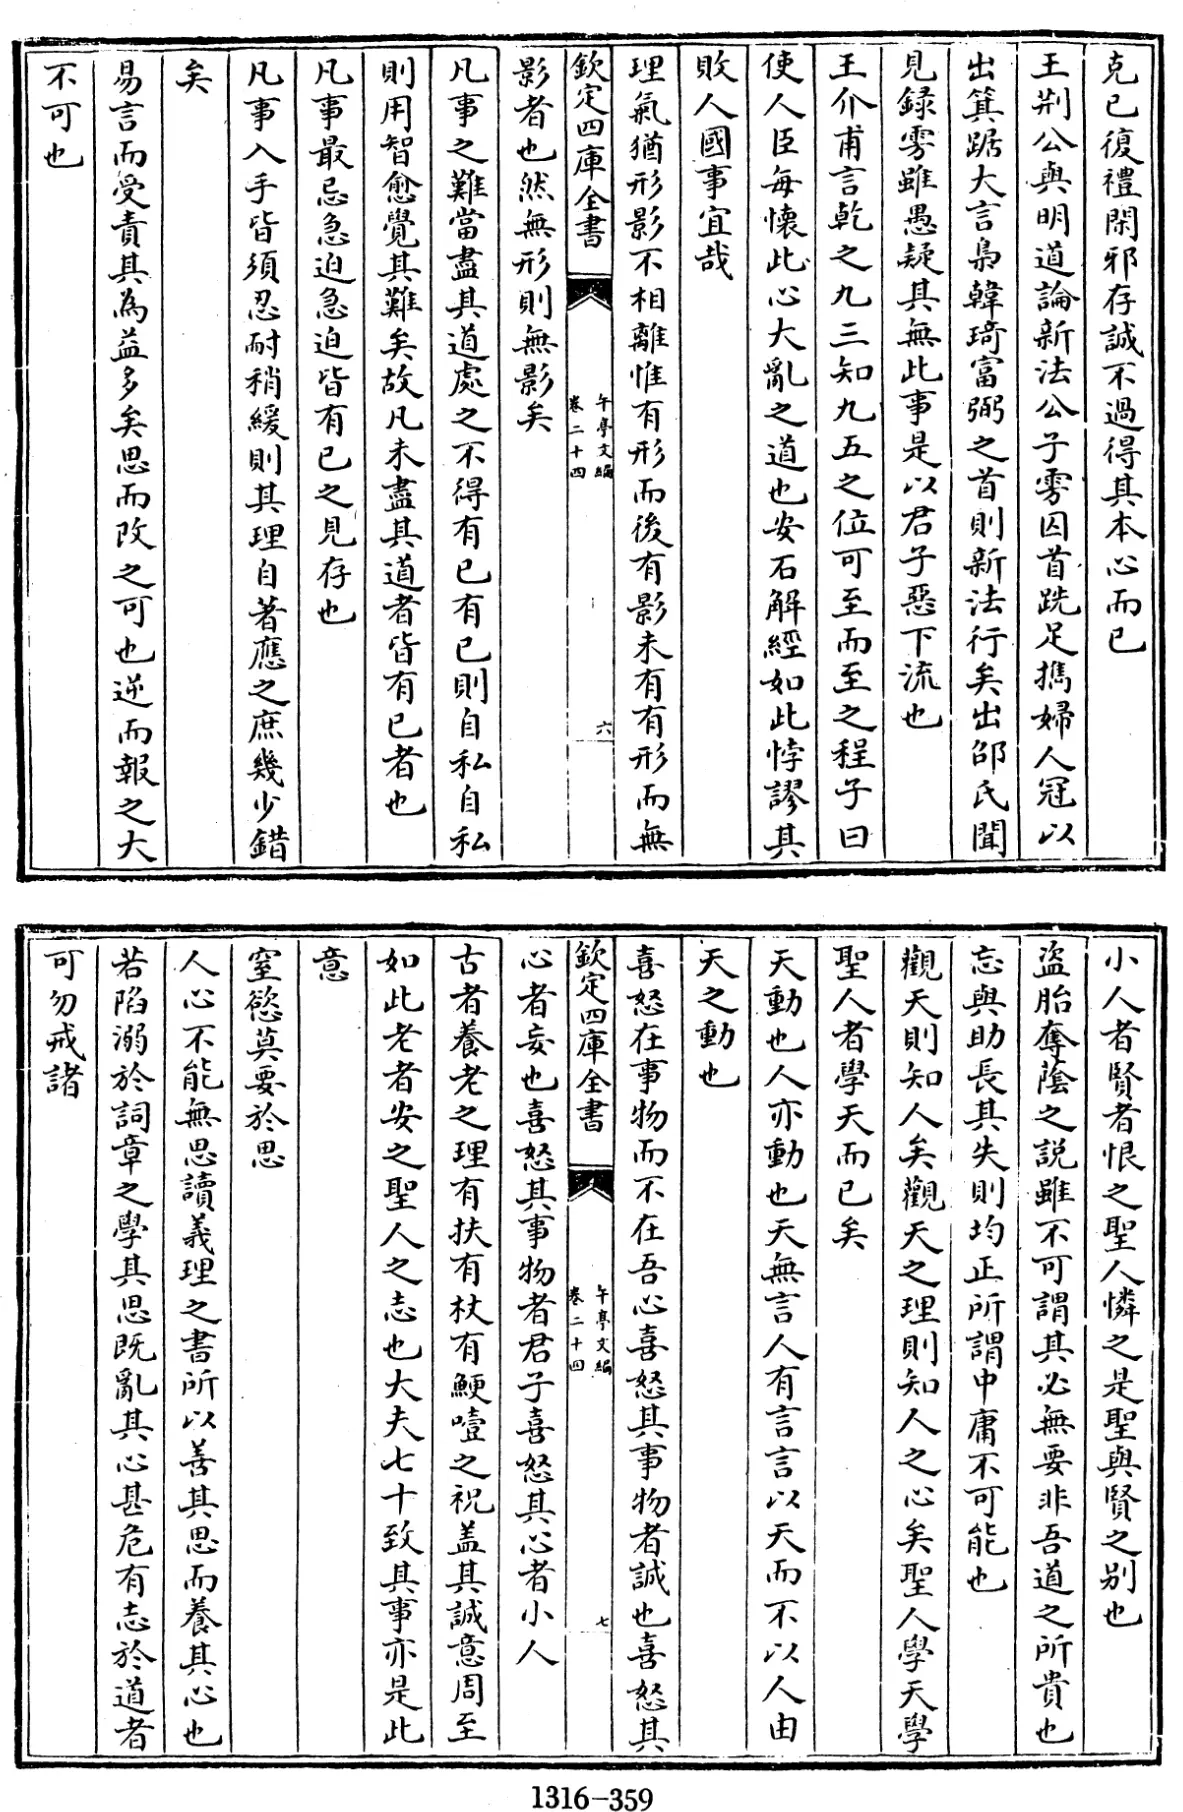 克已復禮閑邪存誠不過得其本心而已
王荆公與明道論新法公子雱囚首跣足攜婦人冠以
出箕踞大言梟韓琦富弼之首則新法行矣出邵氏聞
見録雱雖愚疑其無此事是以君子惡下流也
王介甫言乾之九三知九五之位可至而至之程子曰
使人臣每懐此心大亂之道也安石解經如此悖謬其
敗人國事宜哉
理氣猶形影不相離惟有形而後有影未有有形而無
欽定四庫全書
午亭文編
卷二十四
六
影者也然無形則無影矣
凡事之難當盡其道處之不得有已有已則自私自私
則用智愈覺其難矣故凡未盡其道者皆有已者也
凡事最忌急迫急迫皆有已之見存也
凡事入手皆須忍耐稍緩則其理自著應之庶幾少錯
矣
易言而受責其為益多矣思而改之可也逆而報之大
不可也
小人者賢者恨之聖人憐之是聖與賢之别也
盜胎奪蔭之説雖不可謂其必無要非吾道之所貴也
忘與助長其失則均正所謂中庸不可能也
觀天則知人矣觀天之理則知人之心矣聖人學天學
聖人者學天而已矣
天動也人亦動也天無言人有言言以天而不以人由
天之動也
喜怒在事物而不在吾心喜怒其事物者誠也喜怒其
欽定四庫全書
午亭文編
卷二十四
七
心者妄也喜怒其事物者君子喜怒其心者小人
古者養老之理有扶有杖有鯁噎之祝盖其誠意周至
如此老者安之聖人之志也大夫七十致其事亦是此
意
窒慾莫要於思
人心不能無思讀義理之書所以善其思而養其心也
若陷溺於詞章之學其思既亂其心甚危有志於道者
可勿戒諸
1316-359